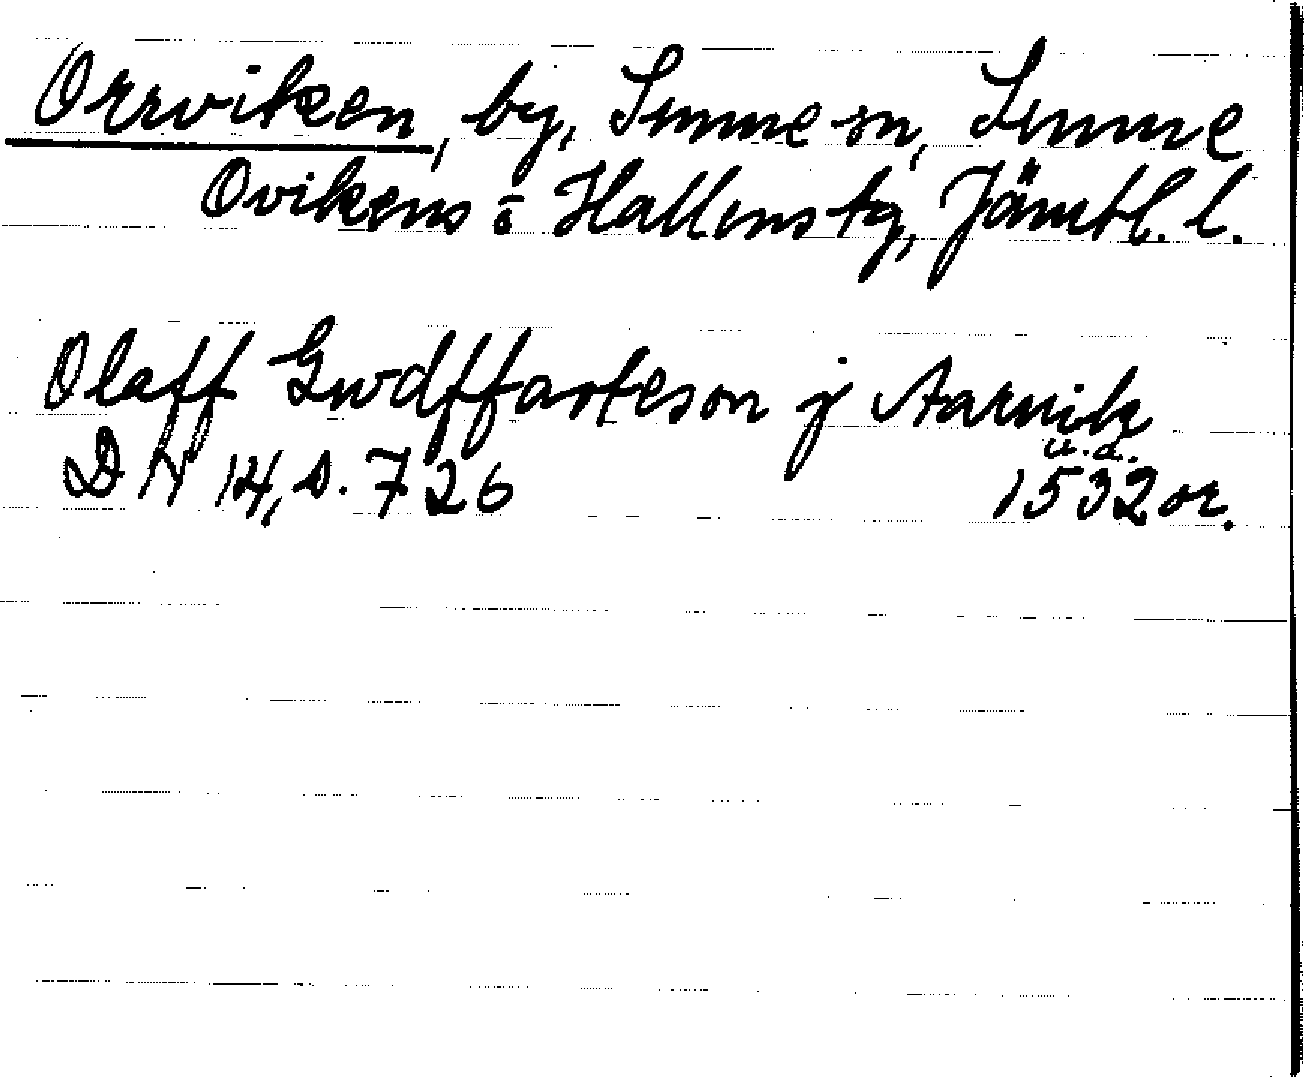 Orrviken, by, Sunne sn, Sunne
Ovikens o Hallens tg, Jämtl. l.
Olaff Gudffasteson j Aarvik
u.a.
DN 14, s. 726 1532 or.